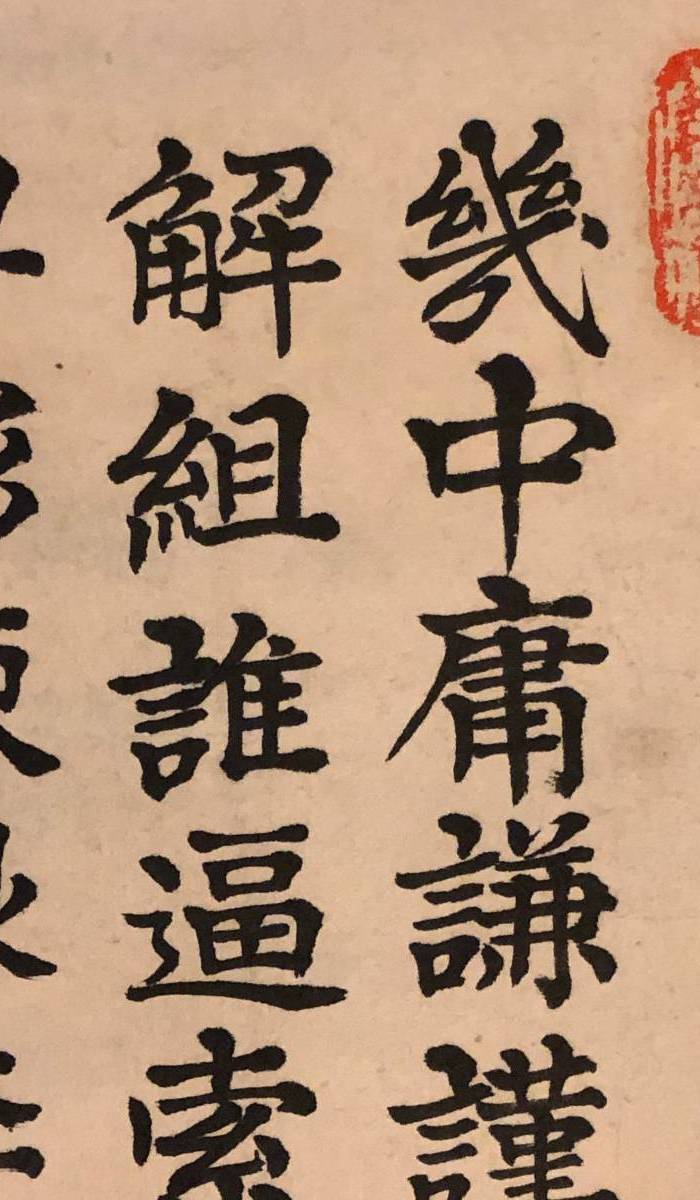 幾中庸謙謹
解組誰逼索